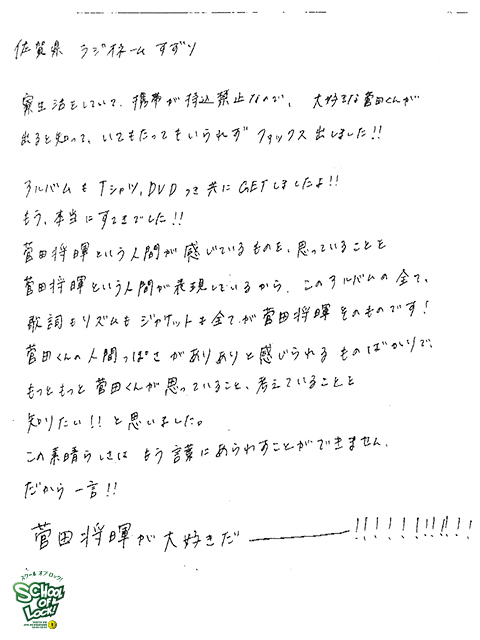 佐賀県 ラジオネーム すずり
寮生活をしていて、携帯が持込禁止なので、大好きな菅田くんが
出ると知って、いてもたってもいられず ファックス出しました!!
アルバムもTシャツ、DVDつき共にGETしましたよ!!
もう、本当にすてきでした!!
菅田将暉という人間が感じているものを、思っていることを
菅田将暉という人間が表現しているから、このアルバムの全て、
歌詞もリズムもジャケットも全てが菅田将暉そのものです!
菅田くんの人間っぽさがありありと感じられるものばかりで、
もっともっと菅田くんが思っていること、考えていることを
知りたい!!と思いました。
この素晴らしさは もう言葉にあらわすことができません。
だから一言!!
菅田将暉が大好きだ―――!!!!!!!!!!
スクールオブロック!
SCHOOL OF LOCK!